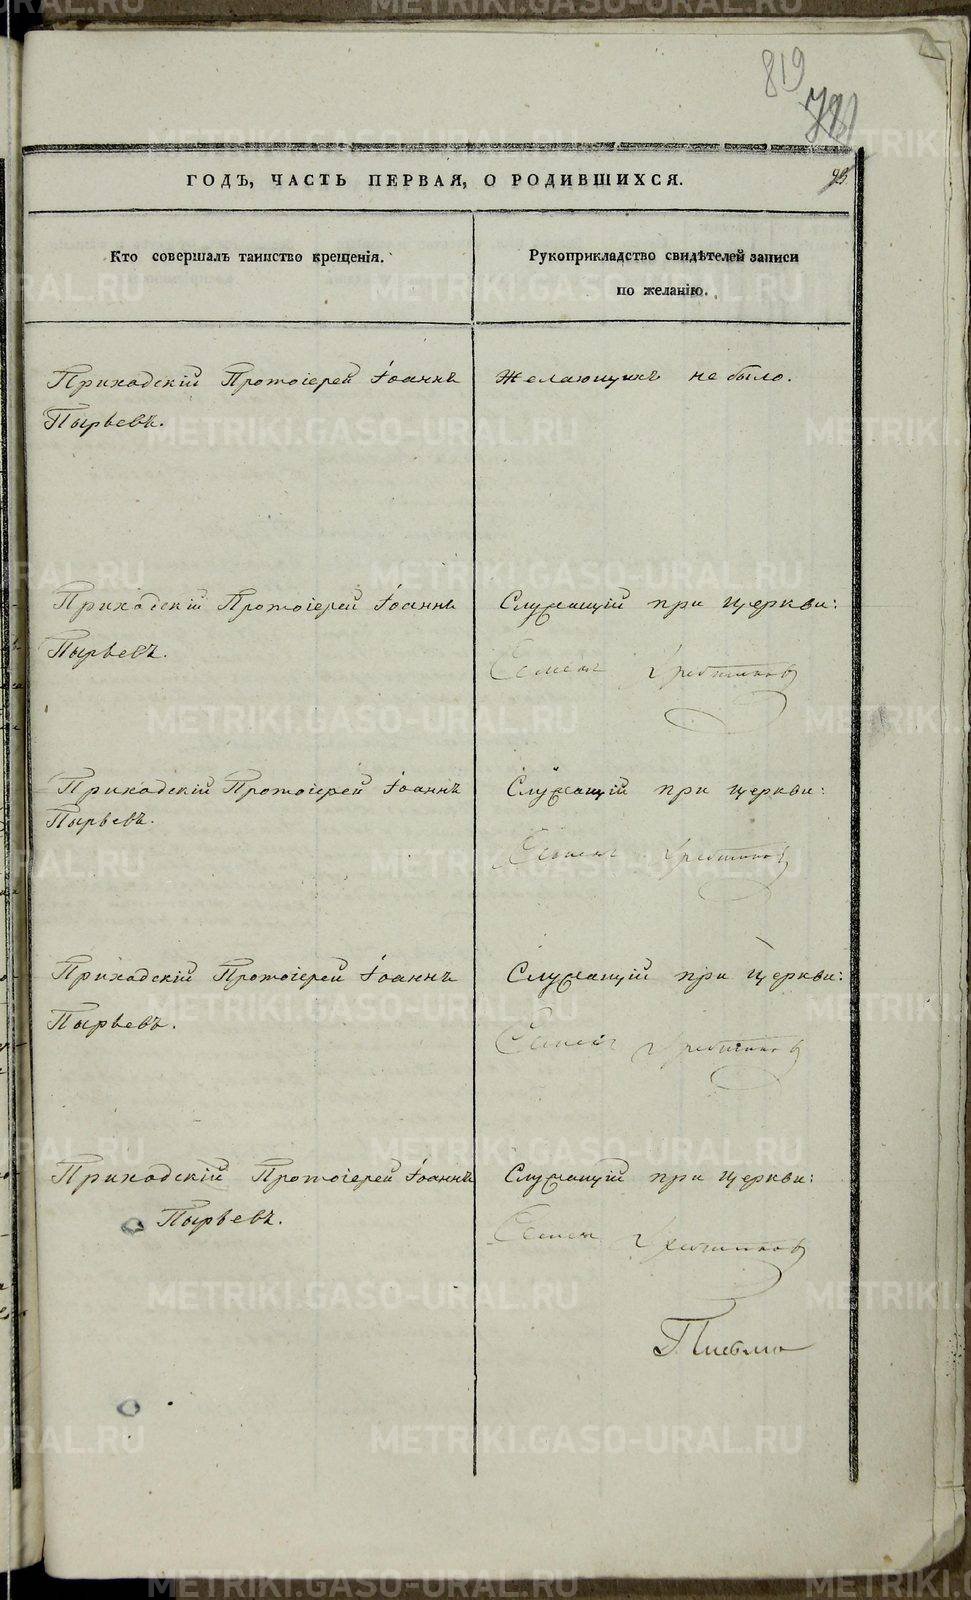 819
ГОДЪ, ЧАСТЬ ПЕРВАЯ, О РОДИВШИХСЯ.
Кто совершалъ таинство крещенія.
Рукоприкладство свидѣтелей записи
по желанію.
Приходскій Протоіерей Іоаннъ
Пырьевъ.
Желающихъ не было.
Приходскій Протоіерей Іоаннъ
Пырьевъ.
Служащій при церкви:
Семенъ
Приходскій Протоіерей Іоаннъ
Пырьевъ.
Служащій при церкви:
Семенъ
Приходскій Протоіерей Іоаннъ
Пырьевъ.
Служащій при церкви:
Семенъ
Приходскій Протоіерей Іоаннъ
Пырьевъ.
Служащій при церкви:
Семенъ
METRIKI.GASO-URAL.RU